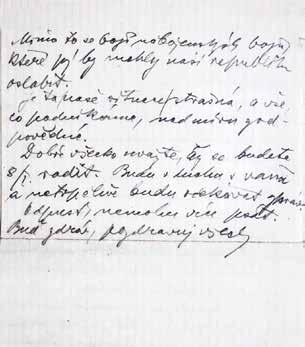 Mimo to se bojí náboženských bojů,
které by mohly naší republiku
oslabit.
Je to nasě situace strašná, a vše,
co podnikáme, nadmíru zod-
povědné.
Dobře všecko uvažte, čez se budete
radit. Budu v duchu s vámi
a netrpělivě budu očekávat zprávu.
Odpusť, nemohu více psát.
Buď zdráv, pozdravuj všecky